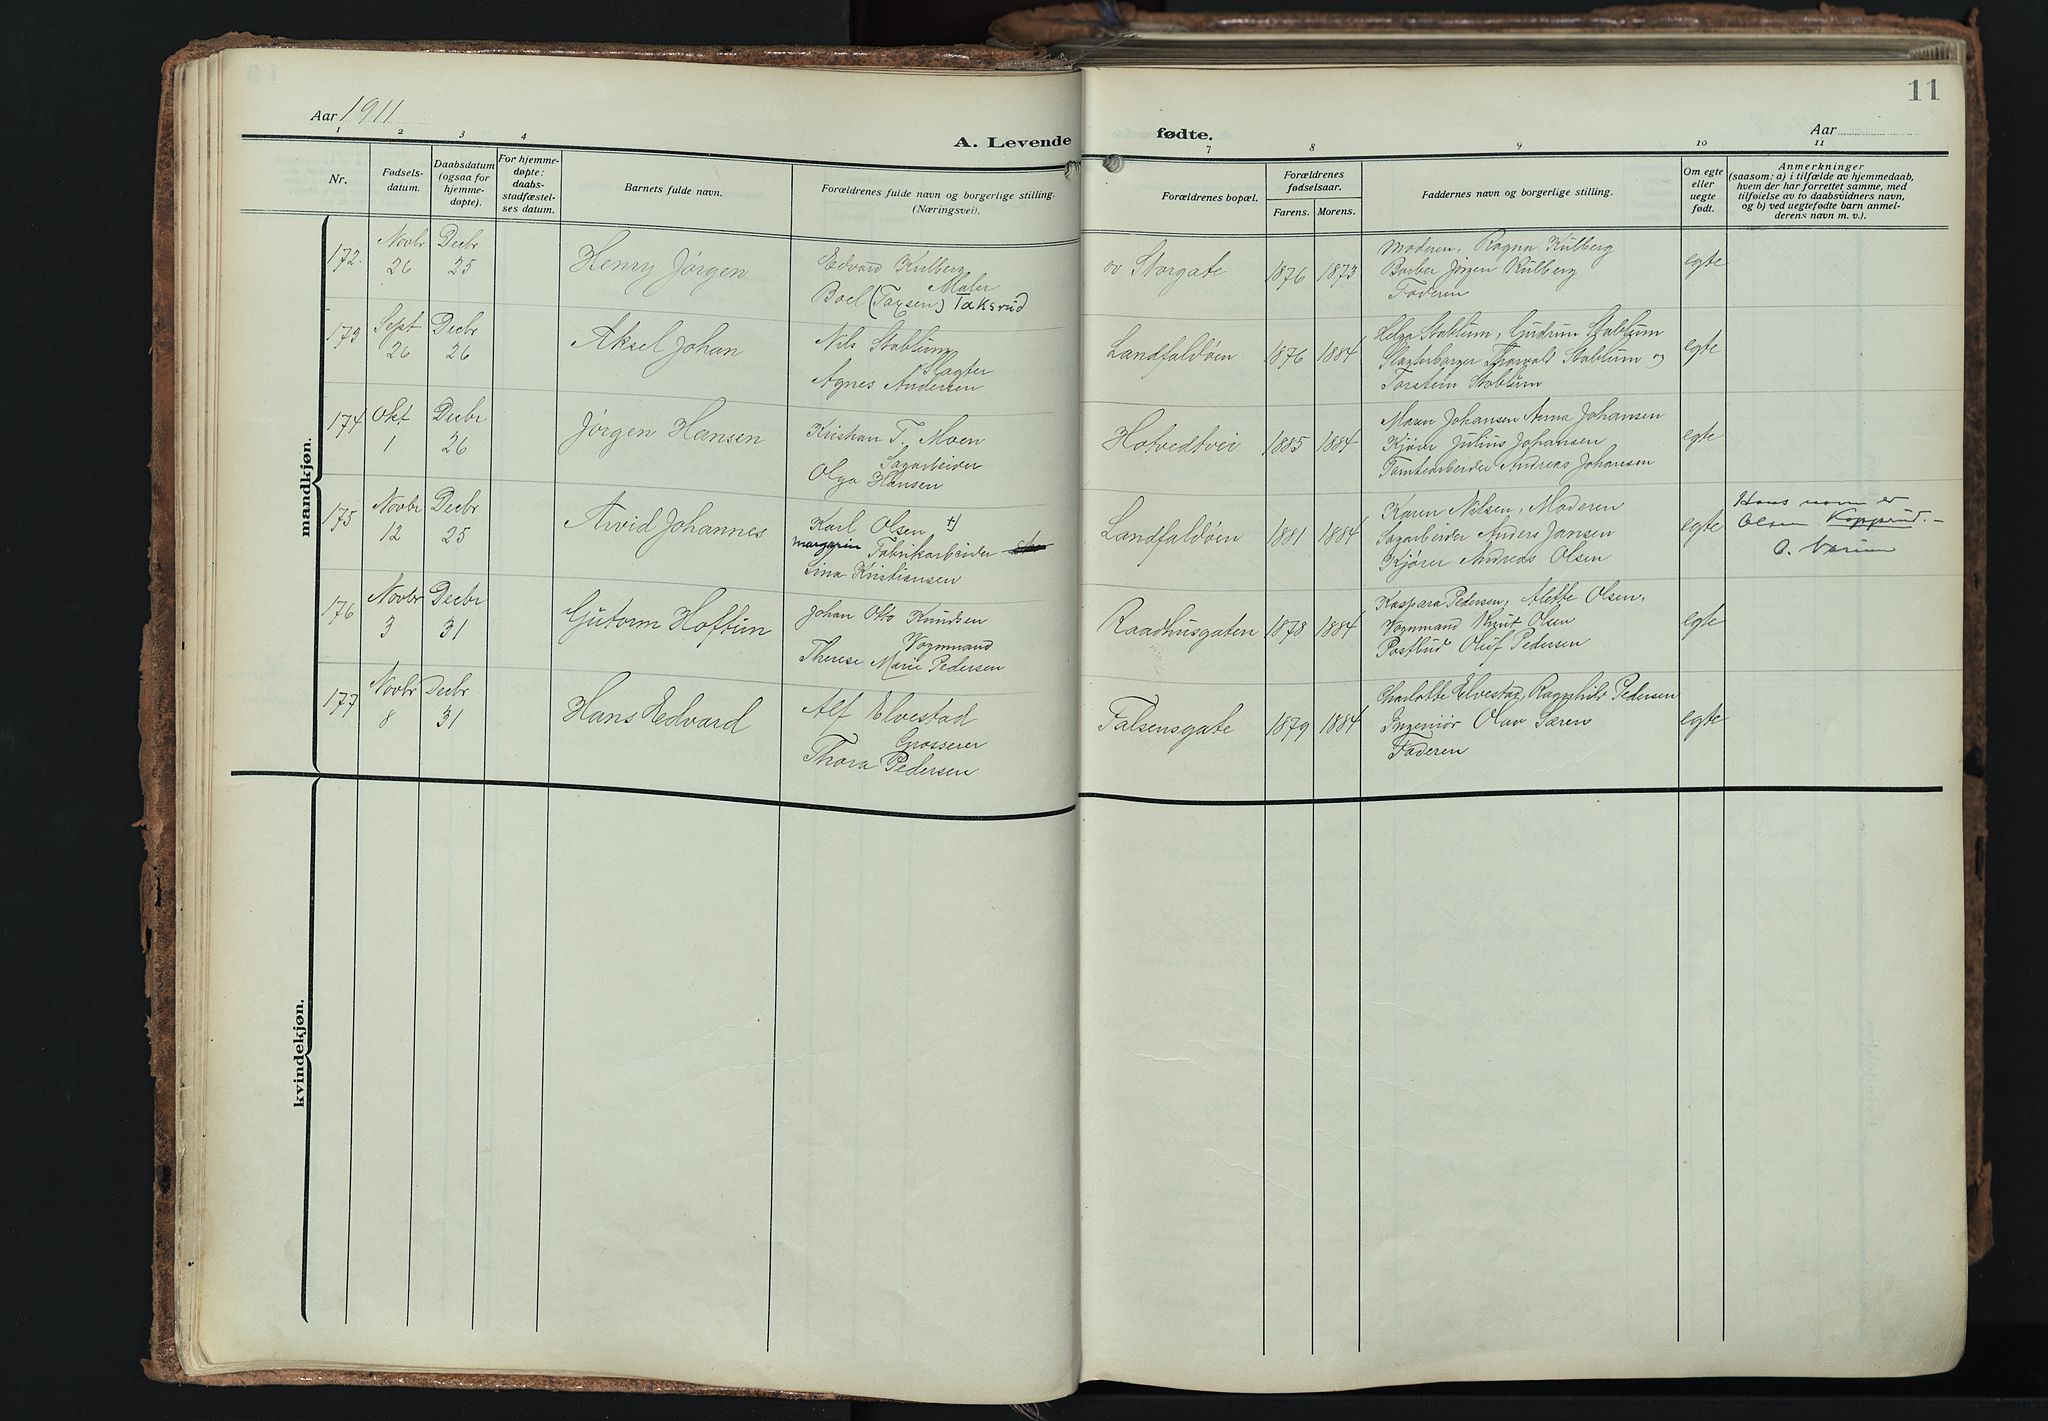 11
Aar 1911
A. Levende fødte.
Aar
1 2 3 4 7 8 9 10 11
Nr.
Fødsels-
datum.
Daabsdatum
(ogsaa for
hjemme-
døpte).
For hjemme-
døpte:
daabs-
stadfæstel-
ses datum.
Barnets fulde navn.
Forældrenes fulde navn og borgerlige stilling.
(Næringsvei).
Forældrenes bopæl.
Forældrenes
fødselsaar.
Farens. Morens.
Faddernes navn og borgerlige stilling.
Om egte
eller
uegte
født.
Anmerkninger
(saasom: a) i tilfælde av hjemmedaab,
hvem der har forrettet samme, med
tilføielse av to daabsvidners navn,
og b) ved uegtefødte barn anmel-
derens navn m. v.).
mandkjøn.
172.
Novbr
26
Decbr
25
Henry Jørgen
Edvard Kulberg
Maler
Boel (Taxsen) Taksrud
øv Storgate
1876 1873
Moderen, Ragna Kulberg
Barber Jørgen Kulberg
Faderen
egte
173
Sept
26
Decbr
26
Aksel Johan
Nils Stablum
Slagter
Agnes Andersen
Landfaldøien
1876 1884
Helga Stablum, Gudrun Stablum
Thorvald Stablum og
Torstein Stablum
egte
174
Okt
1
Decbr
26
Jørgen Hansen
Kristian T. Moen
Sagarbeider
Olga Hansen
Hotvedtvei
1885 1884
Maren Johansen Anna Johansen
Kjører Julius Johansen
Tomtearbeider Andreas Johansen
egte
175
Novbr
12
Decbr
25
Arvid Johannes
Karl Olsen †)
margarin Fabrikarbeider
Lina Kristiansen
Landfaldøien
1881 1884
Karen Nilsen, Moderen
Sagarbeider Anders Jansen
Kjører Andreas Olsen
egte
Hans navn er
Olsen Kopprud. –
176
Novbr
3
Decbr
31
Gutorm Hoftun
Johan Otto Knudsen
Vognmand
Therese Marie Pedersen
Raadhusgaten
1878 1884
Kaspara Pedersen, Alette Olsen,
Vognmand Knut Olsen
Postbud Oluf Pedersen
egte
177
Novbr
8
Decbr
31
Hans Edvard
Alf Elvestad
Grosserer
Thora Pedersen
Falsensgate
1879 1884
Charlotte Elvestad, Ragnhild Pedersen
Ingeniør Olav Særen
Faderen
egte
kvindekjøn.